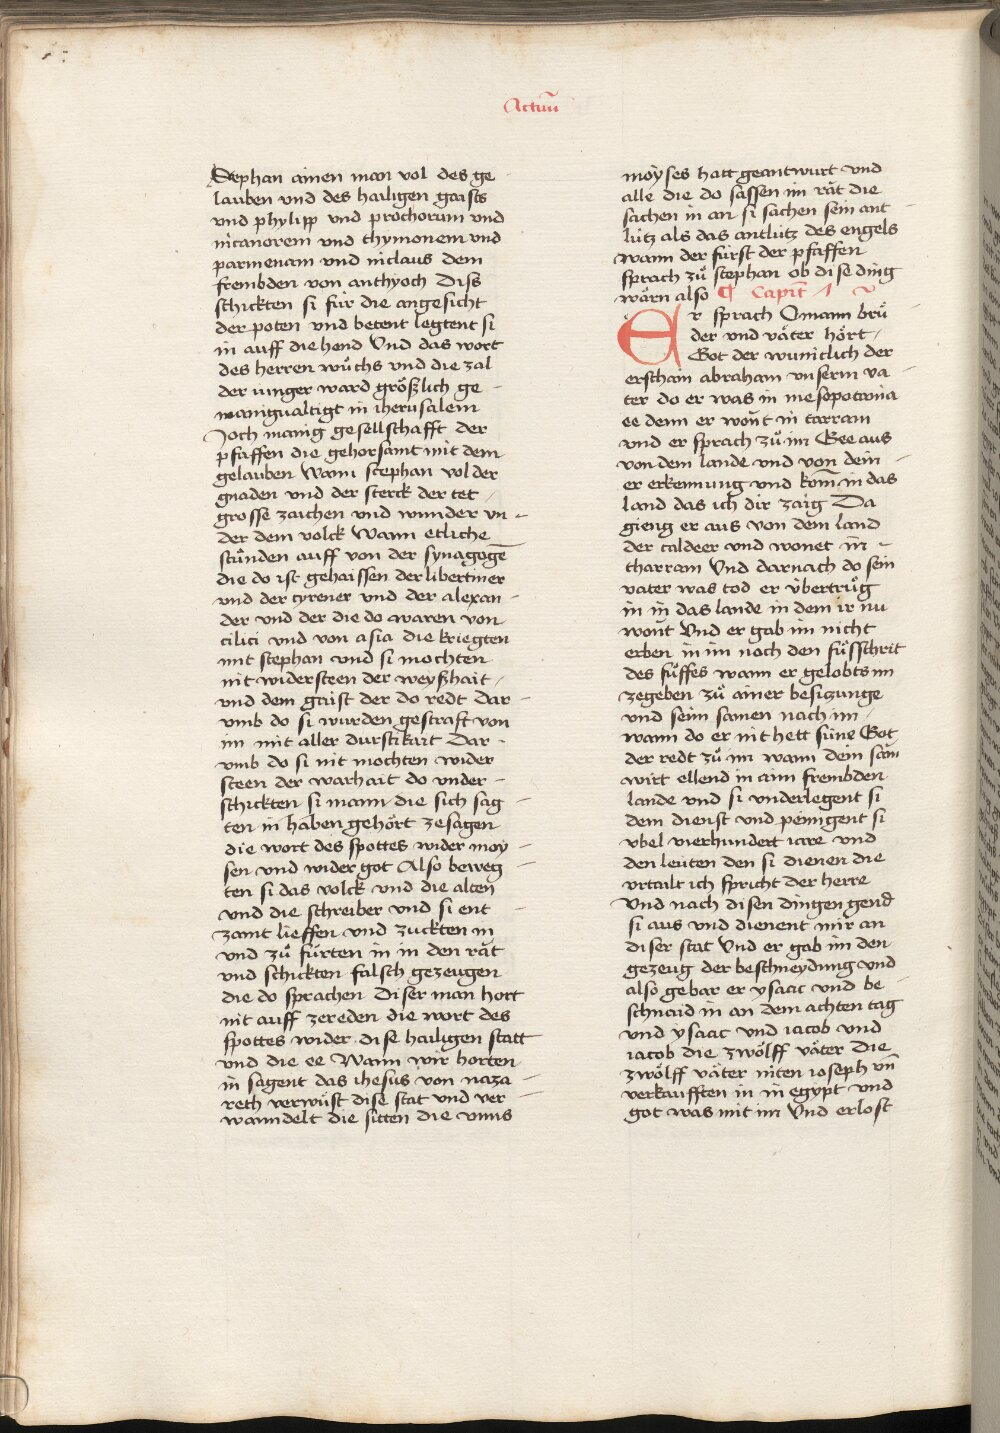 Actuu̅
Stephan ainen man vol des ge
lauben vnd des hailigen gaists
vnd phylipp vnd prochorum vnd
nicanorem vnd thymonem vnd
parmenam vnd niclaus dem
frembden von anthyoch Diss
schickten si für die angesicht
der poten vnd betent legtent si
in auff die hend Vnd das wort
des herren wůchs vnd die zal
der iunger ward größlich ge
manigualtigt in iherusalem
Joch manig gesellschafft der
pfaffen die gehorsamt mit dem
gelauben Wann stephan vol der
gnaden vnd der sterck der tet
grosse zaichen vnd wunder vn
der dem volck Wann etliche
stůnden auff von der synagoge̅
die do ist gehaissen der libertiner
vnd der cyrener vnd der alexan
der vnd der die do waren von
cilici vnd von asia die kriegten
mit stephan vnd si mochten
nit widersteen der weyßhait
vnd dem gaist der do redt Dar
vmb do si wurden gestraft von
im mit aller durstikait Dar
vmb do si nit mochten wider
steen der warhait do vnder
schickten si mann die sich sag
ten in haben gehört zesagen
die wort des spottes wider moy
sen vnd wider got Also beweg
ten si das volck vnd die alten
vnd die schreiber vnd si ent
zamt lieffen vnd zuckten in
vnd zů fürten in in den rät
vnd schickten falsch gezeugen
die do sprachen Diser man hort
nit auff zereden die wort des
spottes wider dise hailigen statt
vnd die ee Wann wir horten
in sagent das ihesus von naza
reth verwüst dise stat vnd ver
wanndelt die sitten die vnns
moyses hatt geantwurt vnd
alle die do sassen im rät die
sachen in an si sachen sein ant
lütz als das antlütz des engels
wann der fürst der pfaffen
sprach zů stephan ob dise ding
wärn also ¶ Capit̅
Er sprach O mann brů
der vnd väter hört
Got der wuniclich der
erschain abraham vnserm va
ter do er was in mesopotania
ee denn er wont in carram
vnd er sprach zů im Gee aus
von dem lande vnd von dein
er erkennung vnd kom̅ in das
land das ich dir zaig Da
gieng er aus von dem land
der caldeer vnd wonet in
tharram Vnd darnach do sein
vater was tod er übertrůg
in in das lande in dem ir nu
wont Vnd er gab im nicht
erben in im noch den fůsschrit
des fůsses wann er gelobts im
zegeben zů ainer besiczunge
vnd seim samen nach im
wann do er nit hett süne Got
der redt zů im wann dein sam
wirt ellend in aim frembden
lande vnd si vnderlegent si
dem dienst vnd peinigent si
vbel vierhundert iare vnd
den leuten den si dienen die
vrtailt ich spricht der herre
Vnd nach disen dingen gend
si aus vnd dienent mir an
diser stat Vnd er gab im den
gezeug der beschneydung vnd
also gebar er ysaac vnd be
schnaid in an dem achten tag
vnd ysaac vnd iacob vnd
iacob die zwölff väter die
zwölff väter niten ioseph vn̅
verkaufften in in egypt vnd
got was mit im Vnd erlost